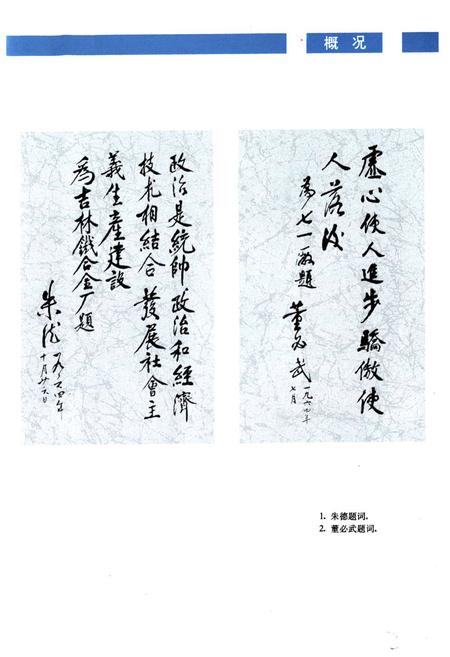 概况
政治是統帥政治和經濟
技术相結合發展社會主
義生產建設
為吉林鐵合金厂題
朱德
一九六四年
十月廿六日
虛心使人進步驕傲使
人落後
為七一厰題
董必武
一九六四年
七月
1. 朱德题词.
2. 董必武题词.